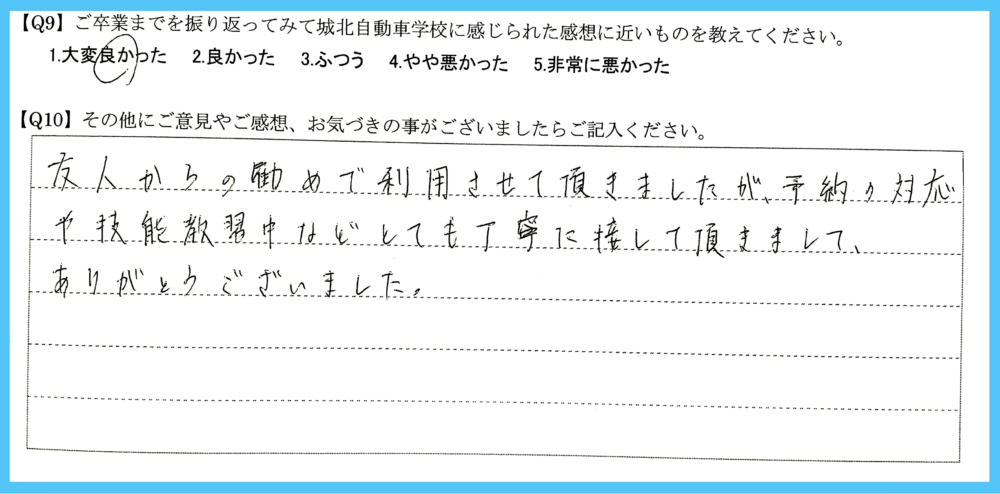 【Q9】ご卒業までを振り返ってみて城北自動車学校に感じられた感想に近いものを教えてください。
1.大変良かった 2.良かった 3.ふつう 4.やや悪かった 5.非常に悪かった
【Q10】その他にご意見やご感想、お気づきの事がございましたらご記入ください。
友人からの勧めで利用させて頂きましたが、予約の対応
や技能教習中などとても丁寧に接して頂きまして、
ありがとうございました。